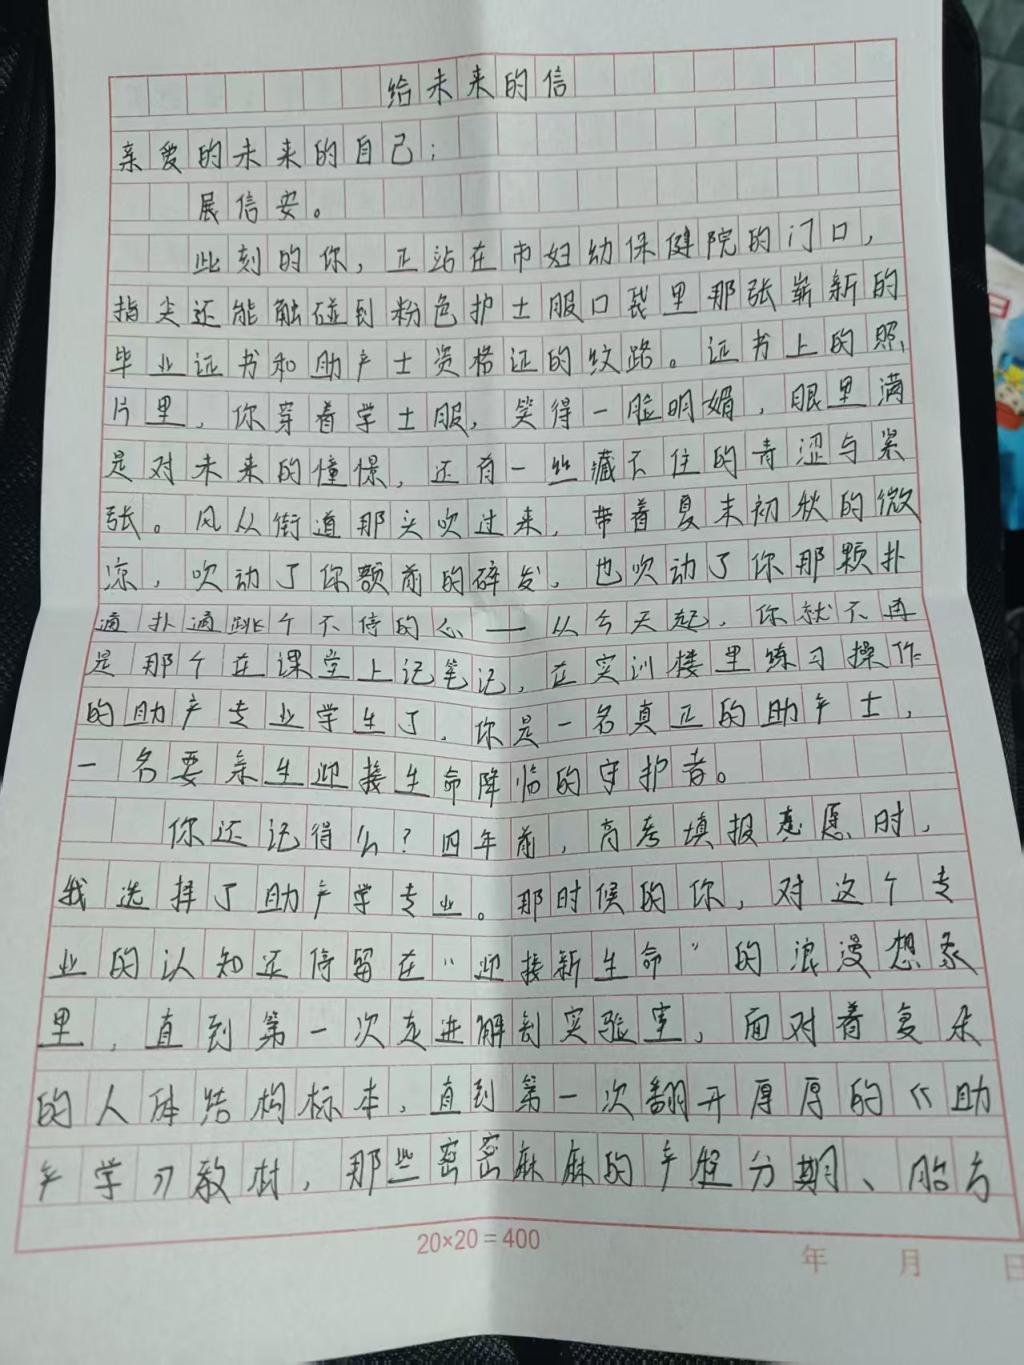 给未来的信
亲爱的未来的自己：
展信安。
此刻的你，正站在市妇幼保健院的门口，
指尖还能触碰到粉色护士服口袋里那张崭新的
毕业证书和助产士资格证的纹路。证书上的照
片里，你穿着学士服，笑得一脸明媚，眼里满
是对未来的憧憬，还有一丝藏不住的青涩与紧
张。风从街道那头吹过来，带着夏末初秋的微
凉，吹动了你额前的碎发，也吹动了你那颗扑
通扑通跳个不停的心——从今天起，你就不再
是那个在课堂上记笔记，在实训楼里练习操作
的助产专业学生了，你是一名真正的助产士，
一名要亲生迎接生命降临的守护者。
你还记得么？四年前，高考填报志愿时，
我选择了助产学专业。那时候的你，对这个专
业的认知还停留在“迎接新生命”的浪漫想象
里，直到第一次走进解剖实验室，面对着复杂
的人体结构标本，直到第一次翻开厚厚的《助
产学》教材，那些密密麻麻的产程分期、胎方
20×20=400
年 月 日